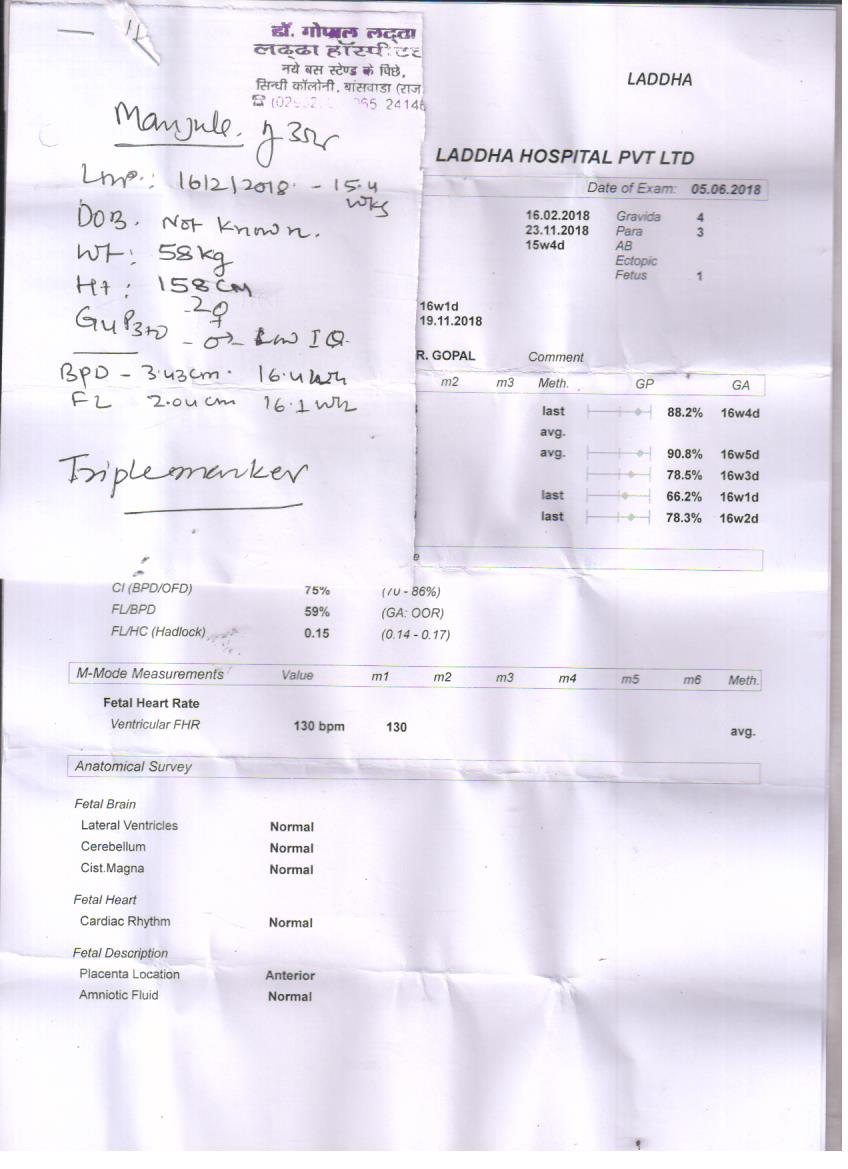 डॉ. गोपाल लद्दा
लद्ढा हॉस्पीटल
नये बस स्टेण्ड के पिछे,
सिन्धी कॉलोनी, बांसवाडा (राज
LADDHA
Manjule.
LMP: 16/2/2018 - 15.4
wks
DOB. Not Known.
Wt: 58 kg
Ht: 158 CM
2♀
G4P3+0 - ♂ - Low IQ.
BPD - 3.43cm. 16.4 wk
FL 2.04 cm 16.1 wk
Triplemarker
LADDHA HOSPITAL PVT LTD
Date of Exam: 05.06.2018
16.02.2018 Gravida 4
23.11.2018 Para 3
15w4d AB
Ectopic
Fetus 1
16w1d
19.11.2018
R. GOPAL Comment
m2 m3 Meth. GP GA
last 88.2% 16w4d
avg.
avg. 90.8% 16w5d
78.5% 16w3d
last 66.2% 16w1d
last 78.3% 16w2d
CI (BPD/OFD) 75% (70 - 86%)
FL/BPD 59% (GA: OOR)
FL/HC (Hadlock) 0.15 (0.14 - 0.17)
M-Mode Measurements Value m1 m2 m3 m4 m5 m6 Meth.
Fetal Heart Rate
Ventricular FHR 130 bpm 130 avg.
Anatomical Survey
Fetal Brain
Lateral Ventricles Normal
Cerebellum Normal
Cist.Magna Normal
Fetal Heart
Cardiac Rhythm Normal
Fetal Description
Placenta Location Anterior
Amniotic Fluid Normal